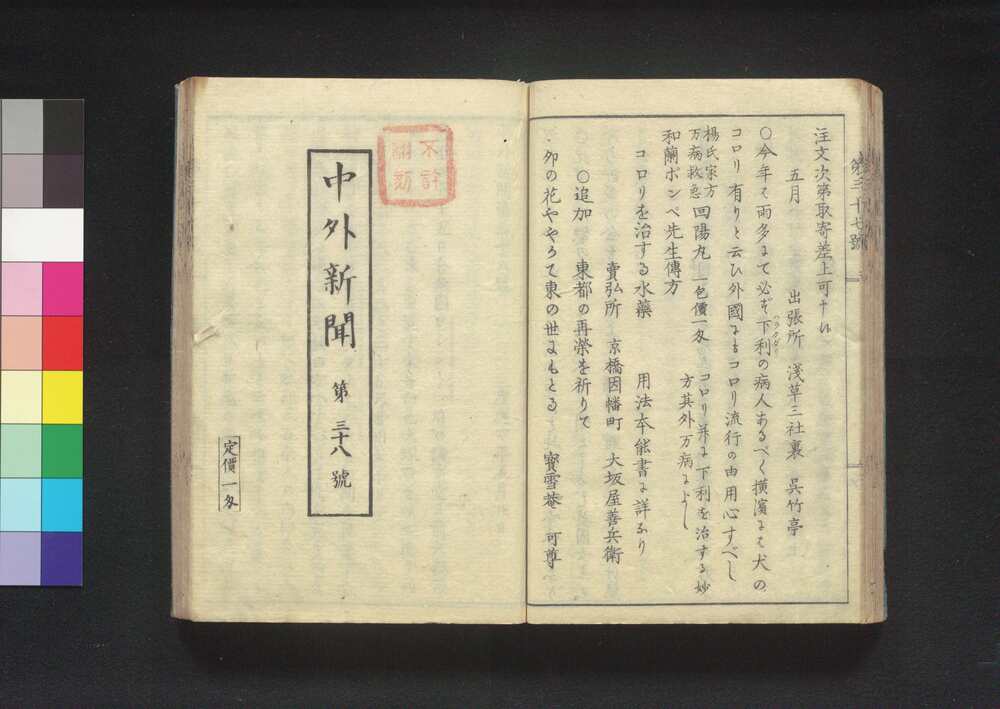 第三十七號
注文次第取寄差上可申候
五月　出張所　淺草三社裏　呉竹亭
○今年て雨多にて必ず下利の病人あるべく横濱にも犬の
ハラクダリ
コロリ有りと云ひ外國にもコロリ流行の由用心すべし
楊氏家方
万病救急
回陽丸　一包價一匁
コロリ并に下利を治する妙
方其外万病によし
和蘭ポンペ先生傳方
コロリを治する水藥　用法本能書に詳なり
賣弘所　京橋因幡町　大坂屋善兵衛
○追加　東都の再榮を祈りて
卯の花やちて東の世にもとる　寳雪菴　可尊
不許
翻刻
中外新聞　第三十八號
定價一匁